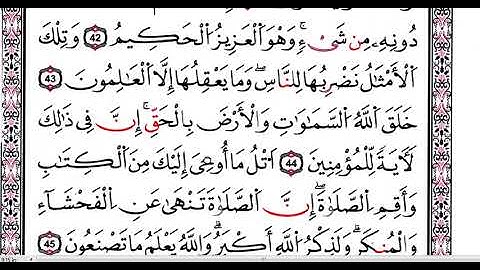 دُونِهِۦ مِن شَىْءٍۢ ۚ وَهُوَ ٱلْعَزِيزُ ٱلْحَكِيمُ 42 وَتِلْكَ
ٱلْأَمْثَٰلُ نَضْرِبُهَا لِلنَّاسِ ۖ وَمَا يَعْقِلُهَآ إِلَّا ٱلْعَٰلِمُونَ 43
خَلَقَ ٱللَّهُ ٱلسَّمَٰوَٰتِ وَٱلْأَرْضَ بِٱلْحَقِّ ۚ إِنَّ فِى ذَٰلِكَ
لَءَايَةً لِّلْمُؤْمِنِينَ 44 ٱتْلُ مَآ أُوحِىَ إِلَيْكَ مِنَ ٱلْكِتَٰبِ
وَأَقِمِ ٱلصَّلَوٰةَ ۖ إِنَّ ٱلصَّلَوٰةَ تَنْهَىٰ عَنِ ٱلْفَحْشَآءِ
وَٱلْمُنكَرِ ۗ وَلَذِكْرُ ٱللَّهِ أَكْبَرُ ۗ وَٱللَّهُ يَعْلَمُ مَا تَصْنَعُونَ 45